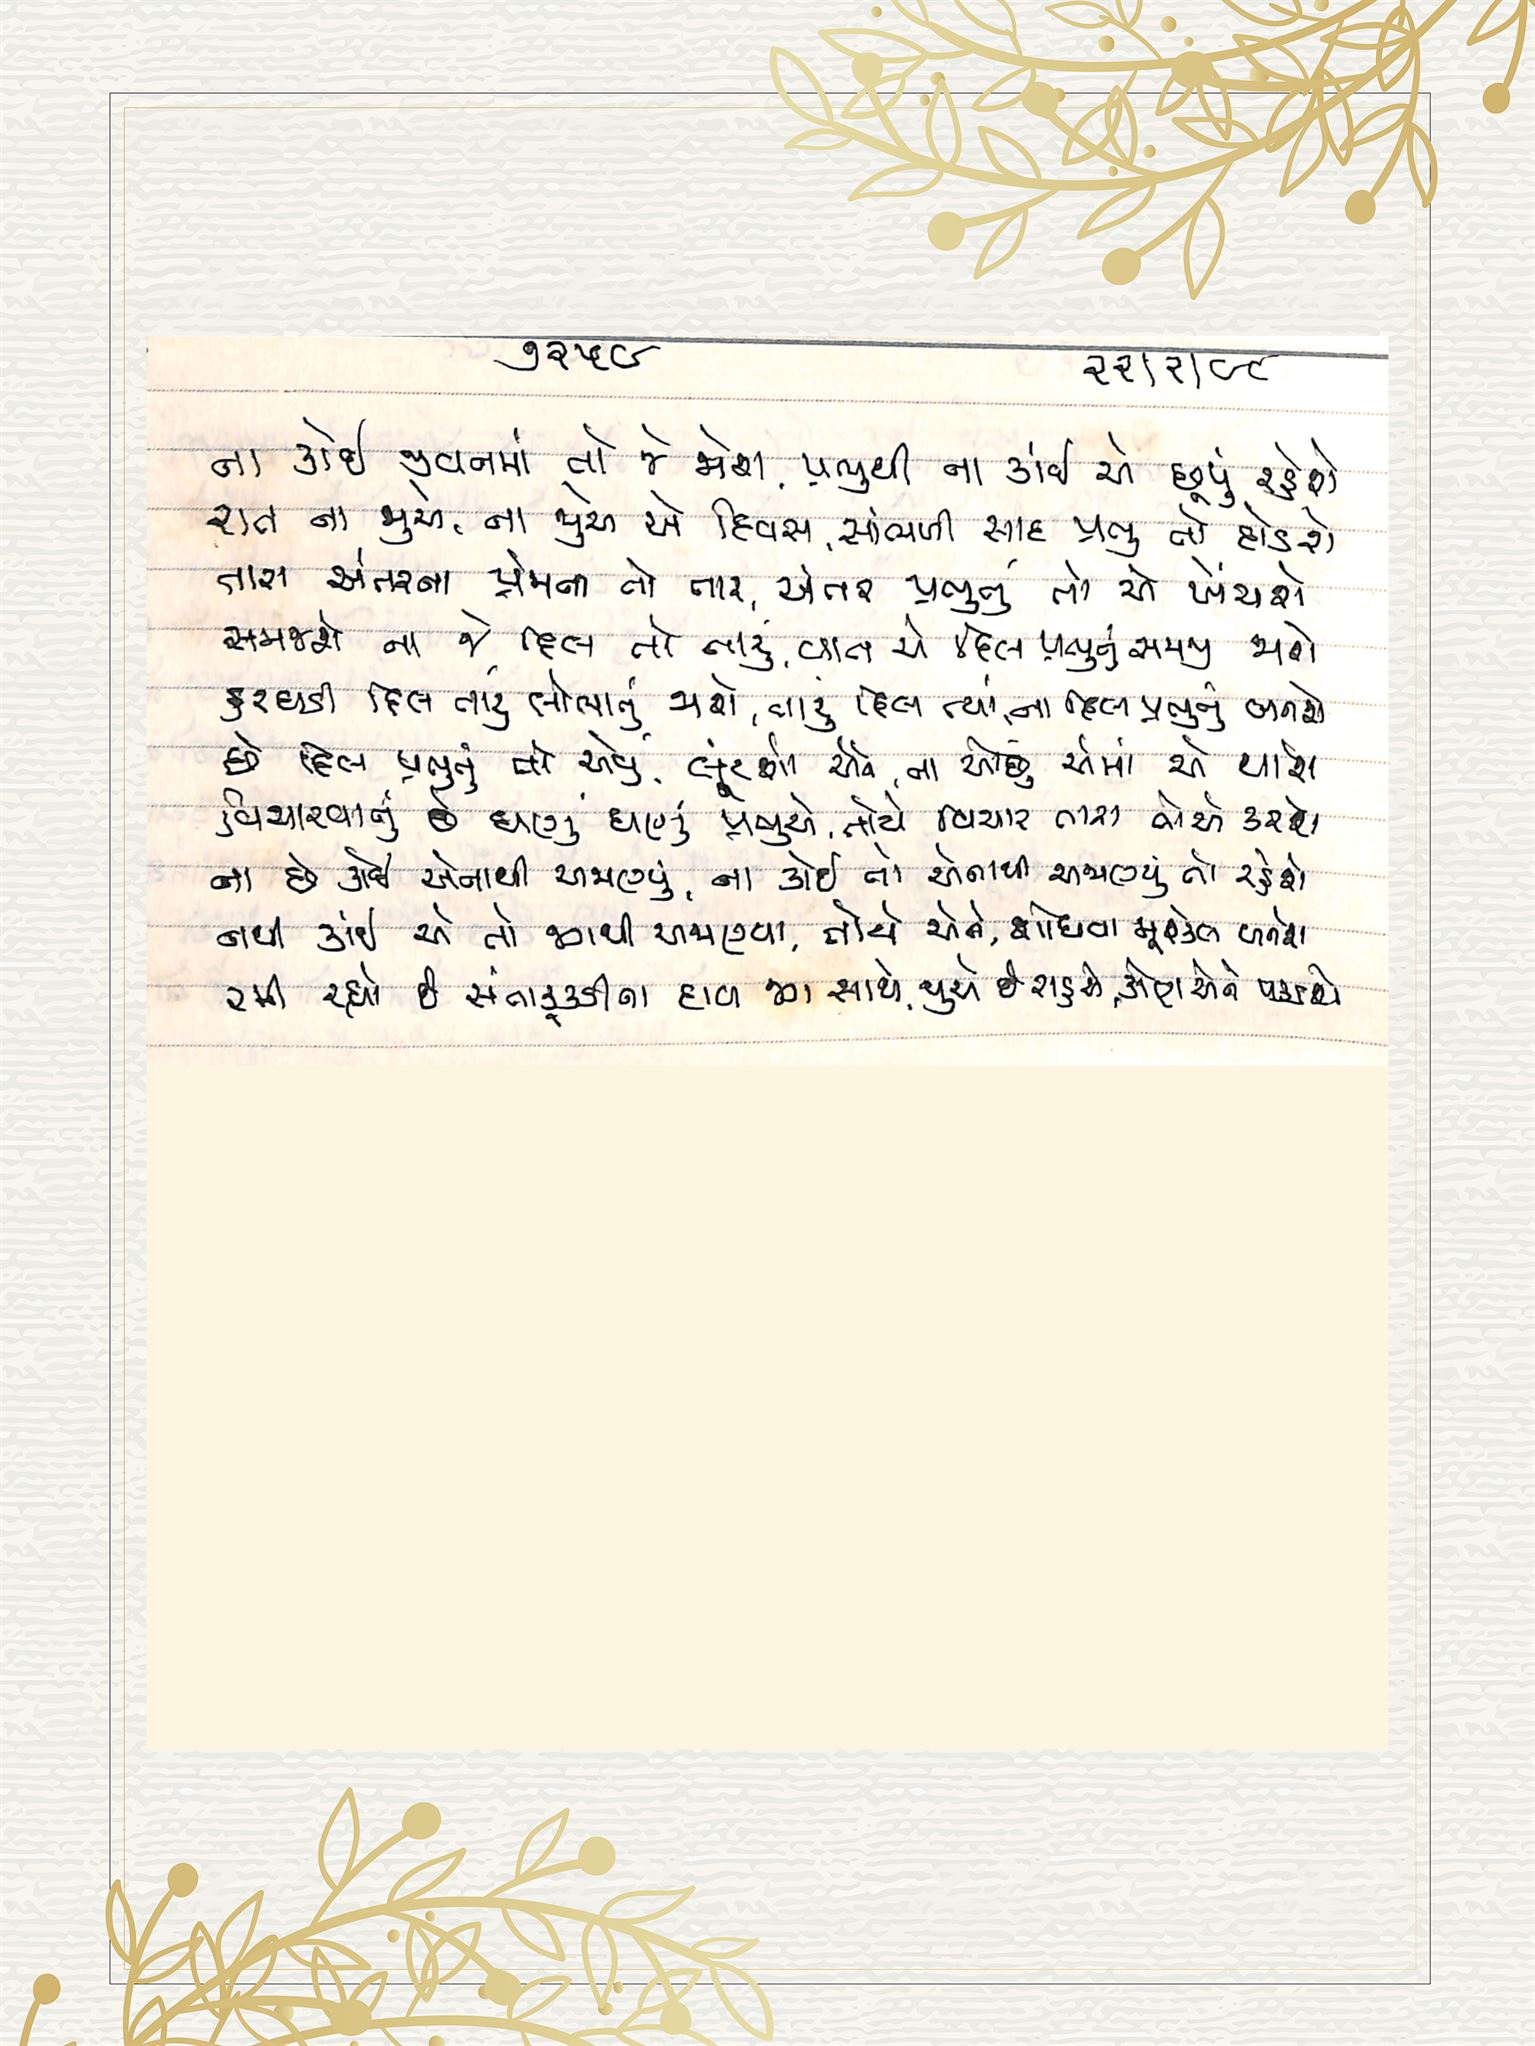 ૧૨૫૯
૨૨/૨/૮૯
ના કોઈ જીવનમાં તો જે જોશે, પ્રભુથી ના કાંઈ એ છૂપું રહેશે
રાત ના જુએ, ના જુએ એ દિવસ, સાંભળી સાદ પ્રભુ તો દોડશે
તારા અંતરના પ્રેમના તો તાર, અંતર પ્રભુનું તો એ ખેંચશે
સમજશે ના જે દિલ તો તારું, વાત એ દિલ પ્રભુનું સમજી જાશે
હરઘડી દિલ તારું લોભાતું જાશે, તારું દિલ ત્યાં, ના દિલ પ્રભુનું બનશે
છે દિલ પ્રભુનું તો એવું, લૂંટશો એને, ના ઓછું એમાં એ થાશે
વિચારવાનું છે ઘણું ઘણું પ્રભુએ, તોયે વિચાર તારા તોએ કરશે
ના છે કોઈ એનાથી અજાણ્યું, ના કોઈ તો એનાથી અજાણ્યું તો રહેશે
નથી કાંઈ એ તો જગથી અજાણ્યા, તોયે એને, શોધવા મૂશ્કેલ બનશે
રમી રહ્યો છે સંતાકૂકડીના દાવ જગ સાથે, જુએ છે રાહ એ, કોણ એને પકડશે